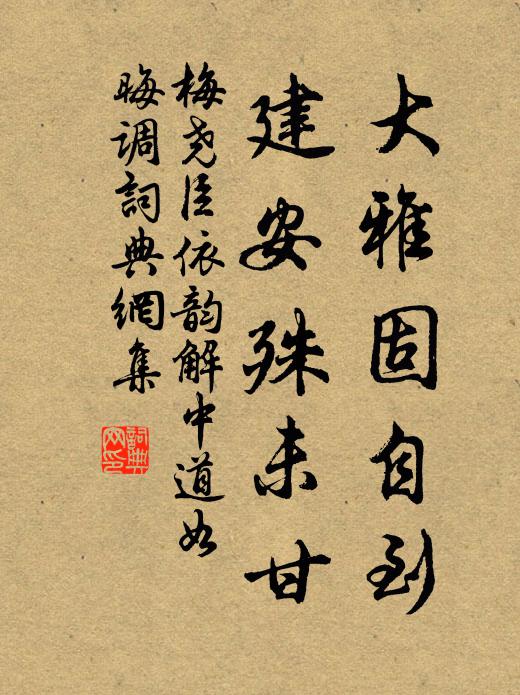 大雅固自到
建安殊未甘
梅尧臣依韵解中道如
晦调詞典網集
詞典網印